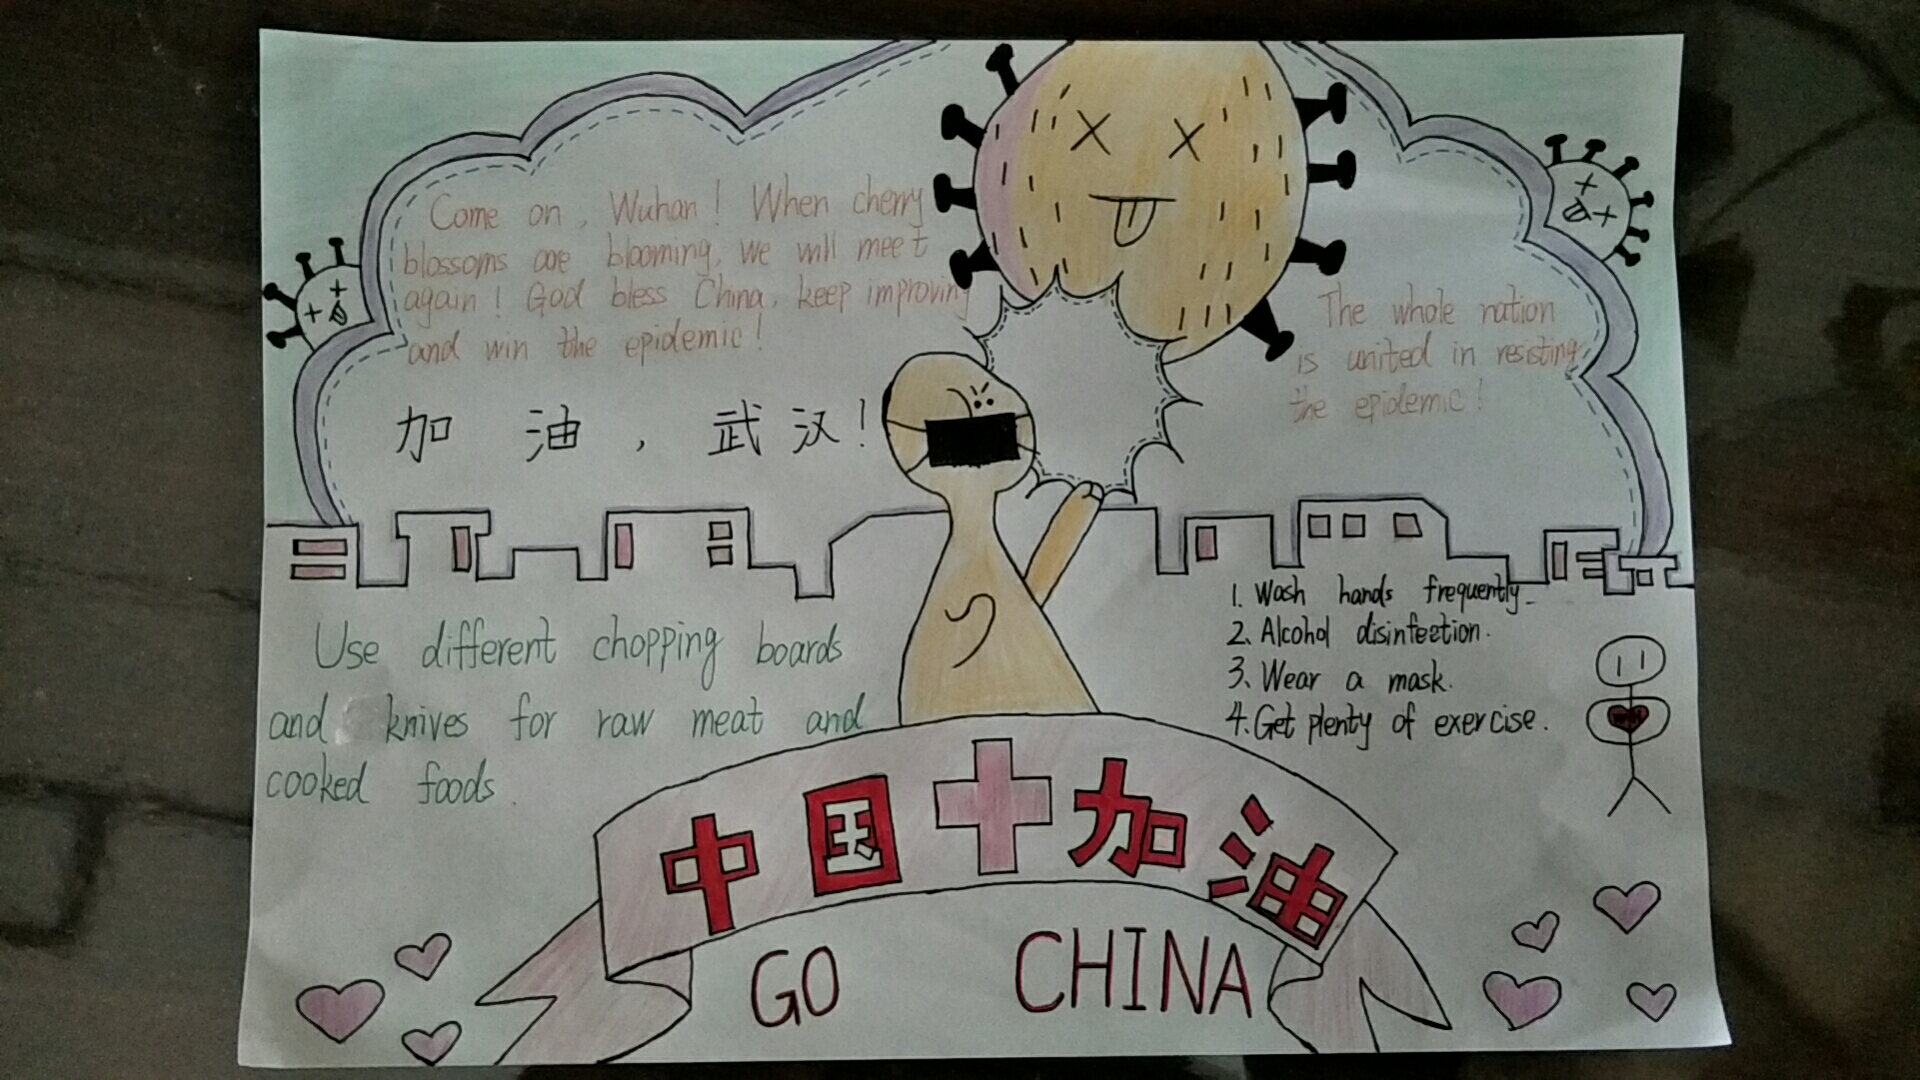 Come on, Wuhan! When cherry
blossoms are blooming, we will meet
again! God bless China, keep improving
and win the epidemic!
加油，武汉!
The whole nation
is united in resisting
the epidemic!
Use different chopping boards
and knives for raw meat and
cooked foods.
1. Wash hands frequently.
2. Alcohol disinfection.
3. Wear a mask.
4. Get plenty of exercise.
中国加油
GO CHINA